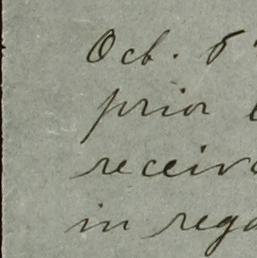 Oct. 5
prior
receiv
in rega